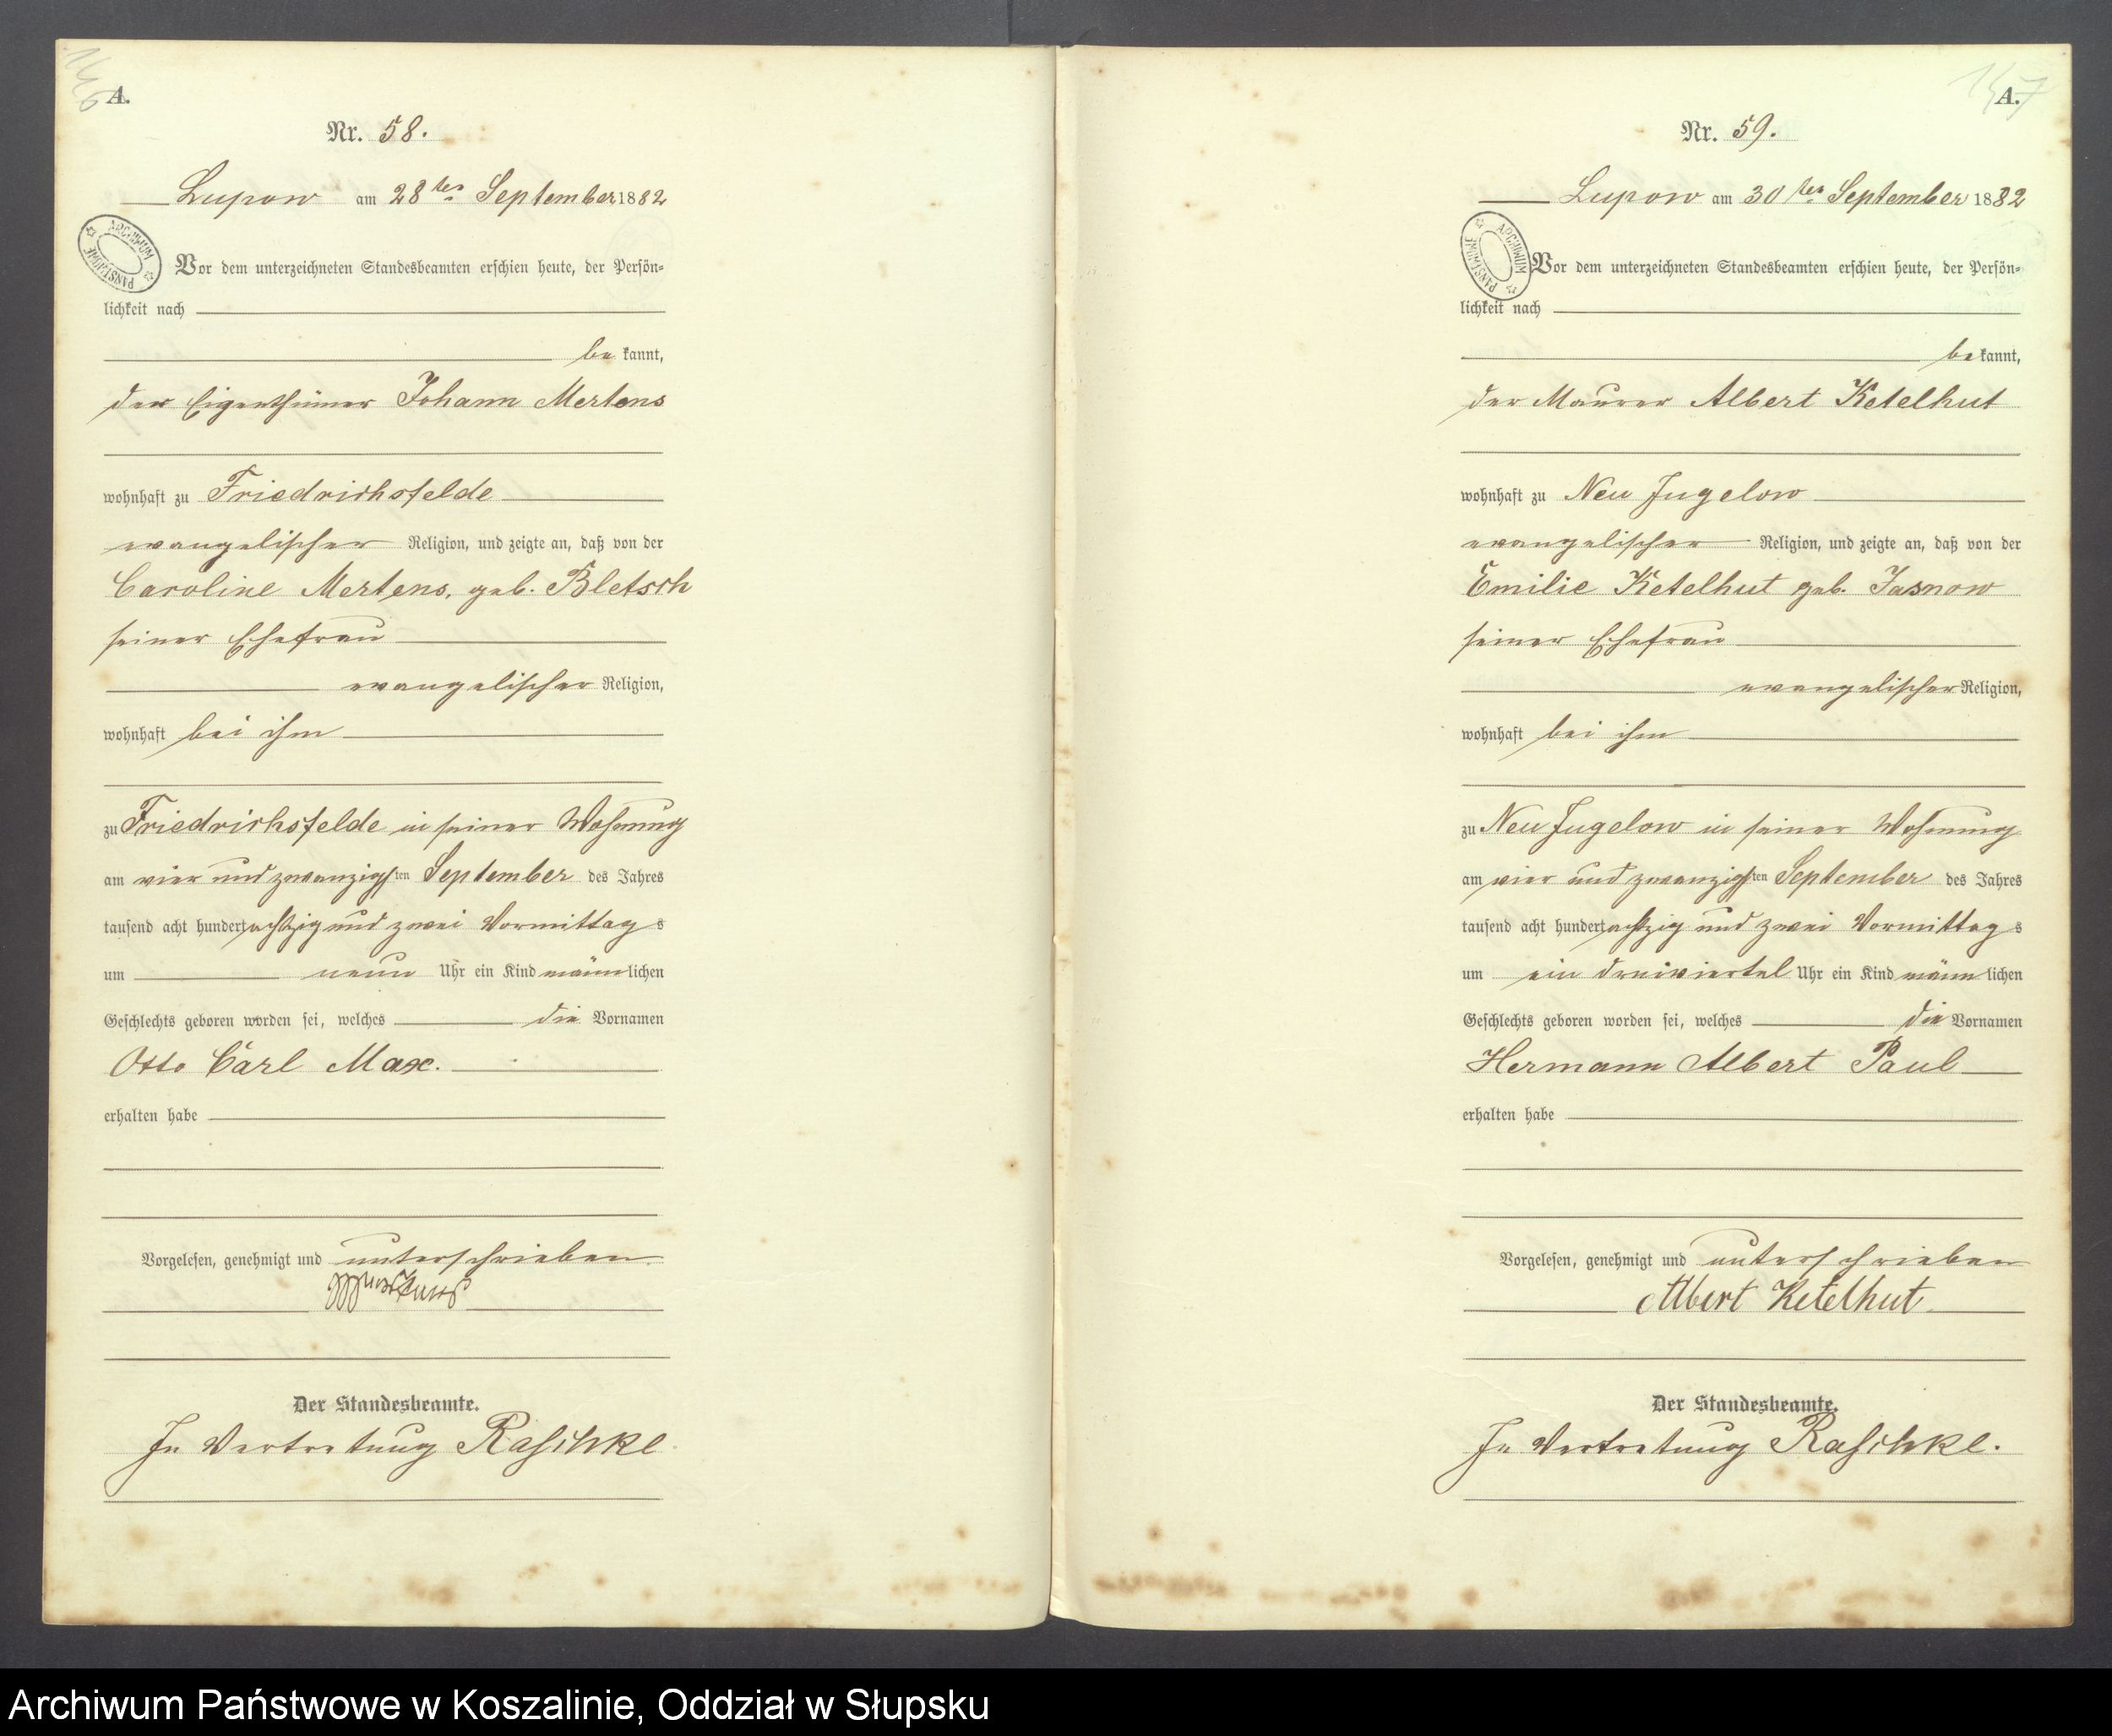 A.
Nr. 58.
Lupow am 28ter September 1882
ARCHIWUM PAŃSTWOWE
Vor dem unterzeichneten Standesbeamten erschien heute, der Persön-
lichkeit nach
be kannt,
der Eigenthümer Johann Mertens
wohnhaft zu Friedrichsfelde
evangelischer Religion, und zeigte an, daß von der
Caroline Mertens, geb. Bletsch
seiner Ehefrau
evangelischer Religion,
wohnhaft bei ihm
zu Friedrichsfelde in seiner Wohnung
am vier und zwanzigsten September des Jahres
tausend acht hundert achtzig und zwei Vormittag s
um neun Uhr ein Kind männ lichen
Geschlechts geboren worden sei, welches die Vornamen
Otto Carl Max.
erhalten habe
Vorgelesen, genehmigt und unterschrieben
Der Standesbeamte.
In Vertretung Raschke
157
A.
Nr. 59.
Lupow am 30ter September 1882
ARCHIWUM PAŃSTWOWE
Vor dem unterzeichneten Standesbeamten erschien heute, der Persön-
lichkeit nach
be kannt,
der Maurer Albert Ketelhut
wohnhaft zu Neu Jugelow
evangelischer Religion, und zeigte an, daß von der
Emilie Ketelhut geb. Jasnow
seiner Ehefrau
evangelischer Religion,
wohnhaft bei ihm
zu Neu Jugelow in seiner Wohnung
am vier und zwanzigsten September des Jahres
tausend acht hundert achtzig und zwei Vormittag s
um ein dreiviertel Uhr ein Kind männ lichen
Geschlechts geboren worden sei, welches die Vornamen
Hermann Albert Paul
erhalten habe
Vorgelesen, genehmigt und unterschrieben
Albert Ketelhut
Der Standesbeamte.
In Vertretung Raschke.
Archiwum Państwowe w Koszalinie, Oddział w Słupsku